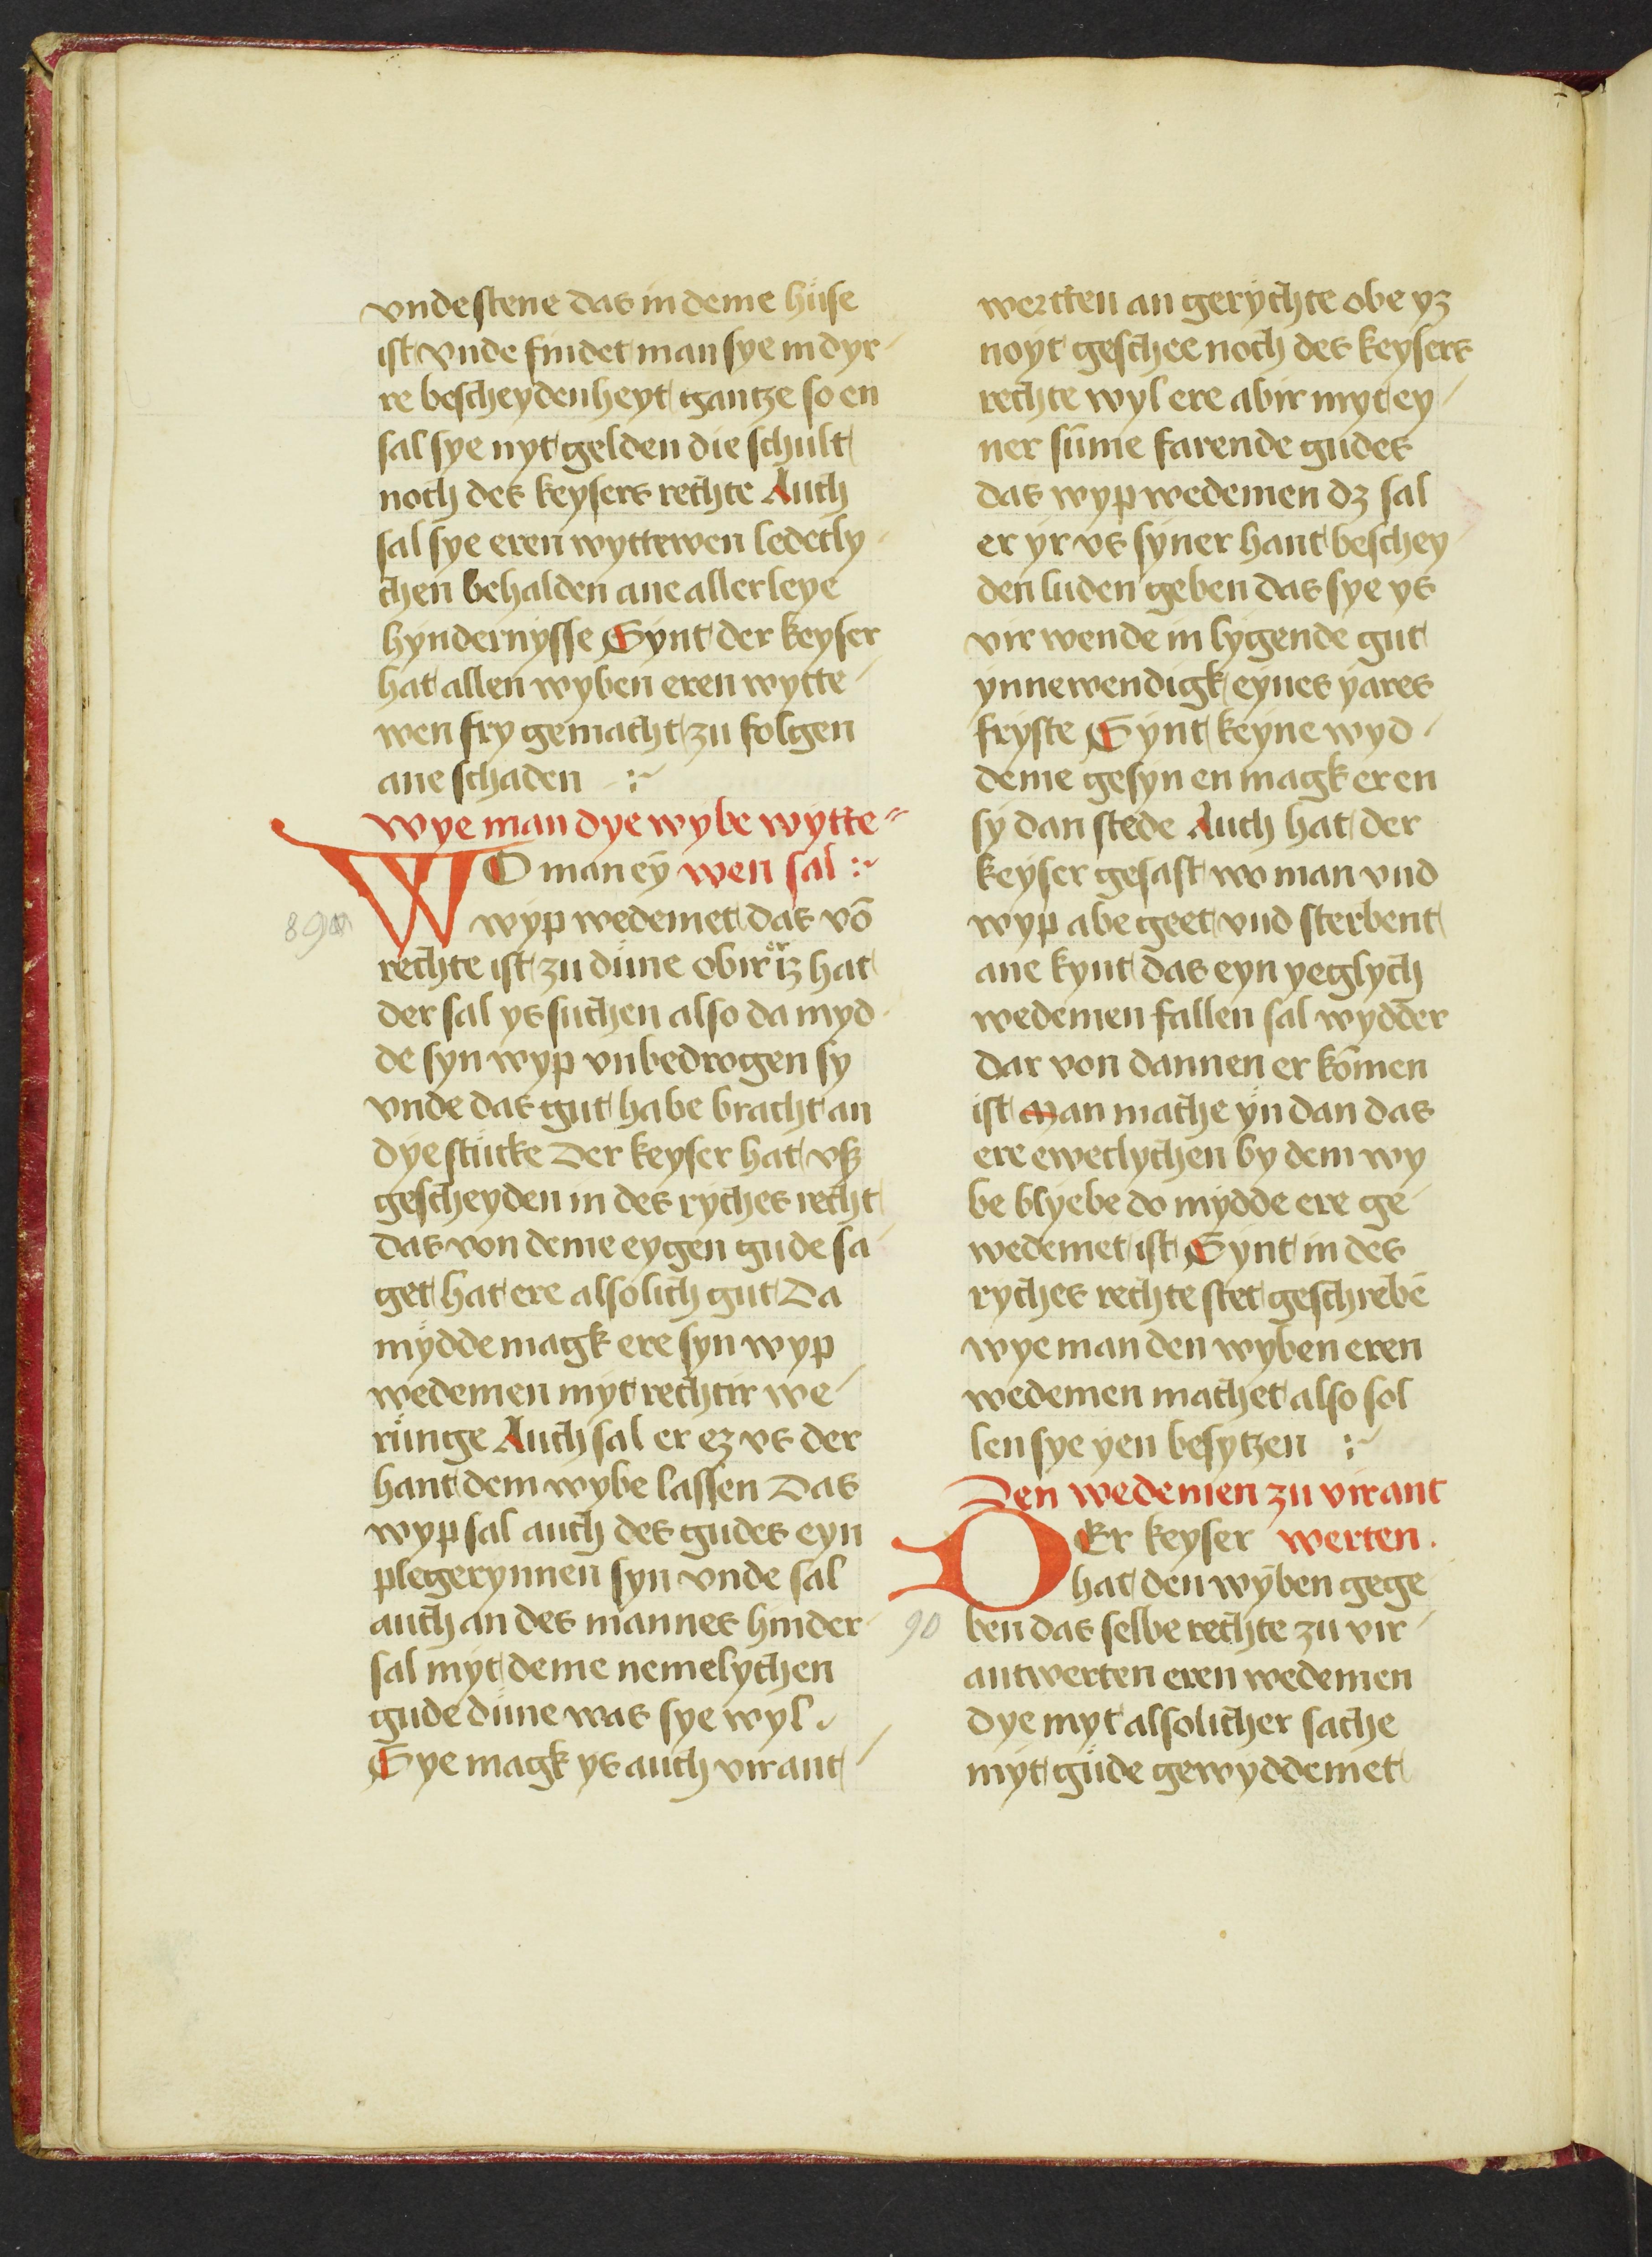 vnde stene das in deme huse
ist vnde findet man sye in dyr-
re bescheydenheyt gantze so en
sal sye nyt gelden die schult
noch des keysers rechte Auch
sal sye eren wyttewen ledecly-
chen behalden ane allerleye
hyndernysse Synt der keyser
hat allen wyben eren wytte-
wen fry gemacht zu folgen
ane schaden :~
Wye man dye wybe wytte-
WO man eȳ wen sal :~
89
wyp wedemet das vō
rechte ist zu dune obir iz hat
der sal ys suchen also da myd-
de syn wyp vnbedrogen sy
vnde das gut habe bracht an
dye stucke Der keyser hat vß
gescheyden in des ryches recht
das von deme eygen gude sa-
get hat ere alsolich gut Da
mydde magk ere syn wyp
wedemen myt rechtir we-
runge Auch sal er ez vs der
hant dem wybe lassen Das
wyp sal auch des gudes eyn
plegerynnen syn vnde sal
auch an des mannes hinder-
sal myt deme nemelychen
gude dune was sye wyl.
Sye magk ys auch virant-
wertten an gerychte obe yz
noyt geschee noch des keysers
rechte wyl ere abir myt ey-
ner sūme farende gudes
das wyp wedemen dz sal
er yr vs syner hant beschey-
den luden geben das sye ys
vir wende in lygende gut
ynnewendigk eynes yares
fryste Synt keyne wyd-
deme gesyn en magk er en
sy dan stede Auch hat der
keyser gesast wo man vnd
wyp abe geet vnd sterbent
ane kynt das eyn yeglych
wedemen fallen sal wydder
dar von dannen er kōmen
ist Man mache yn dan das
ere eweclychen by dem wy
be blyebe do mydde ere ge-
wedemet ist Synt in des
ryches rechte stet geschrebē
wye man den wyben eren
wedemen machet also sol
len sye yen besytzen :~
Den wedemen zu virant
DEr keyser werten.
hat den wyben gege
90
ben das selbe rechte zu vir-
antwerten eren wedemen
dye myt alsolicher sache
myt gude gewyddemet